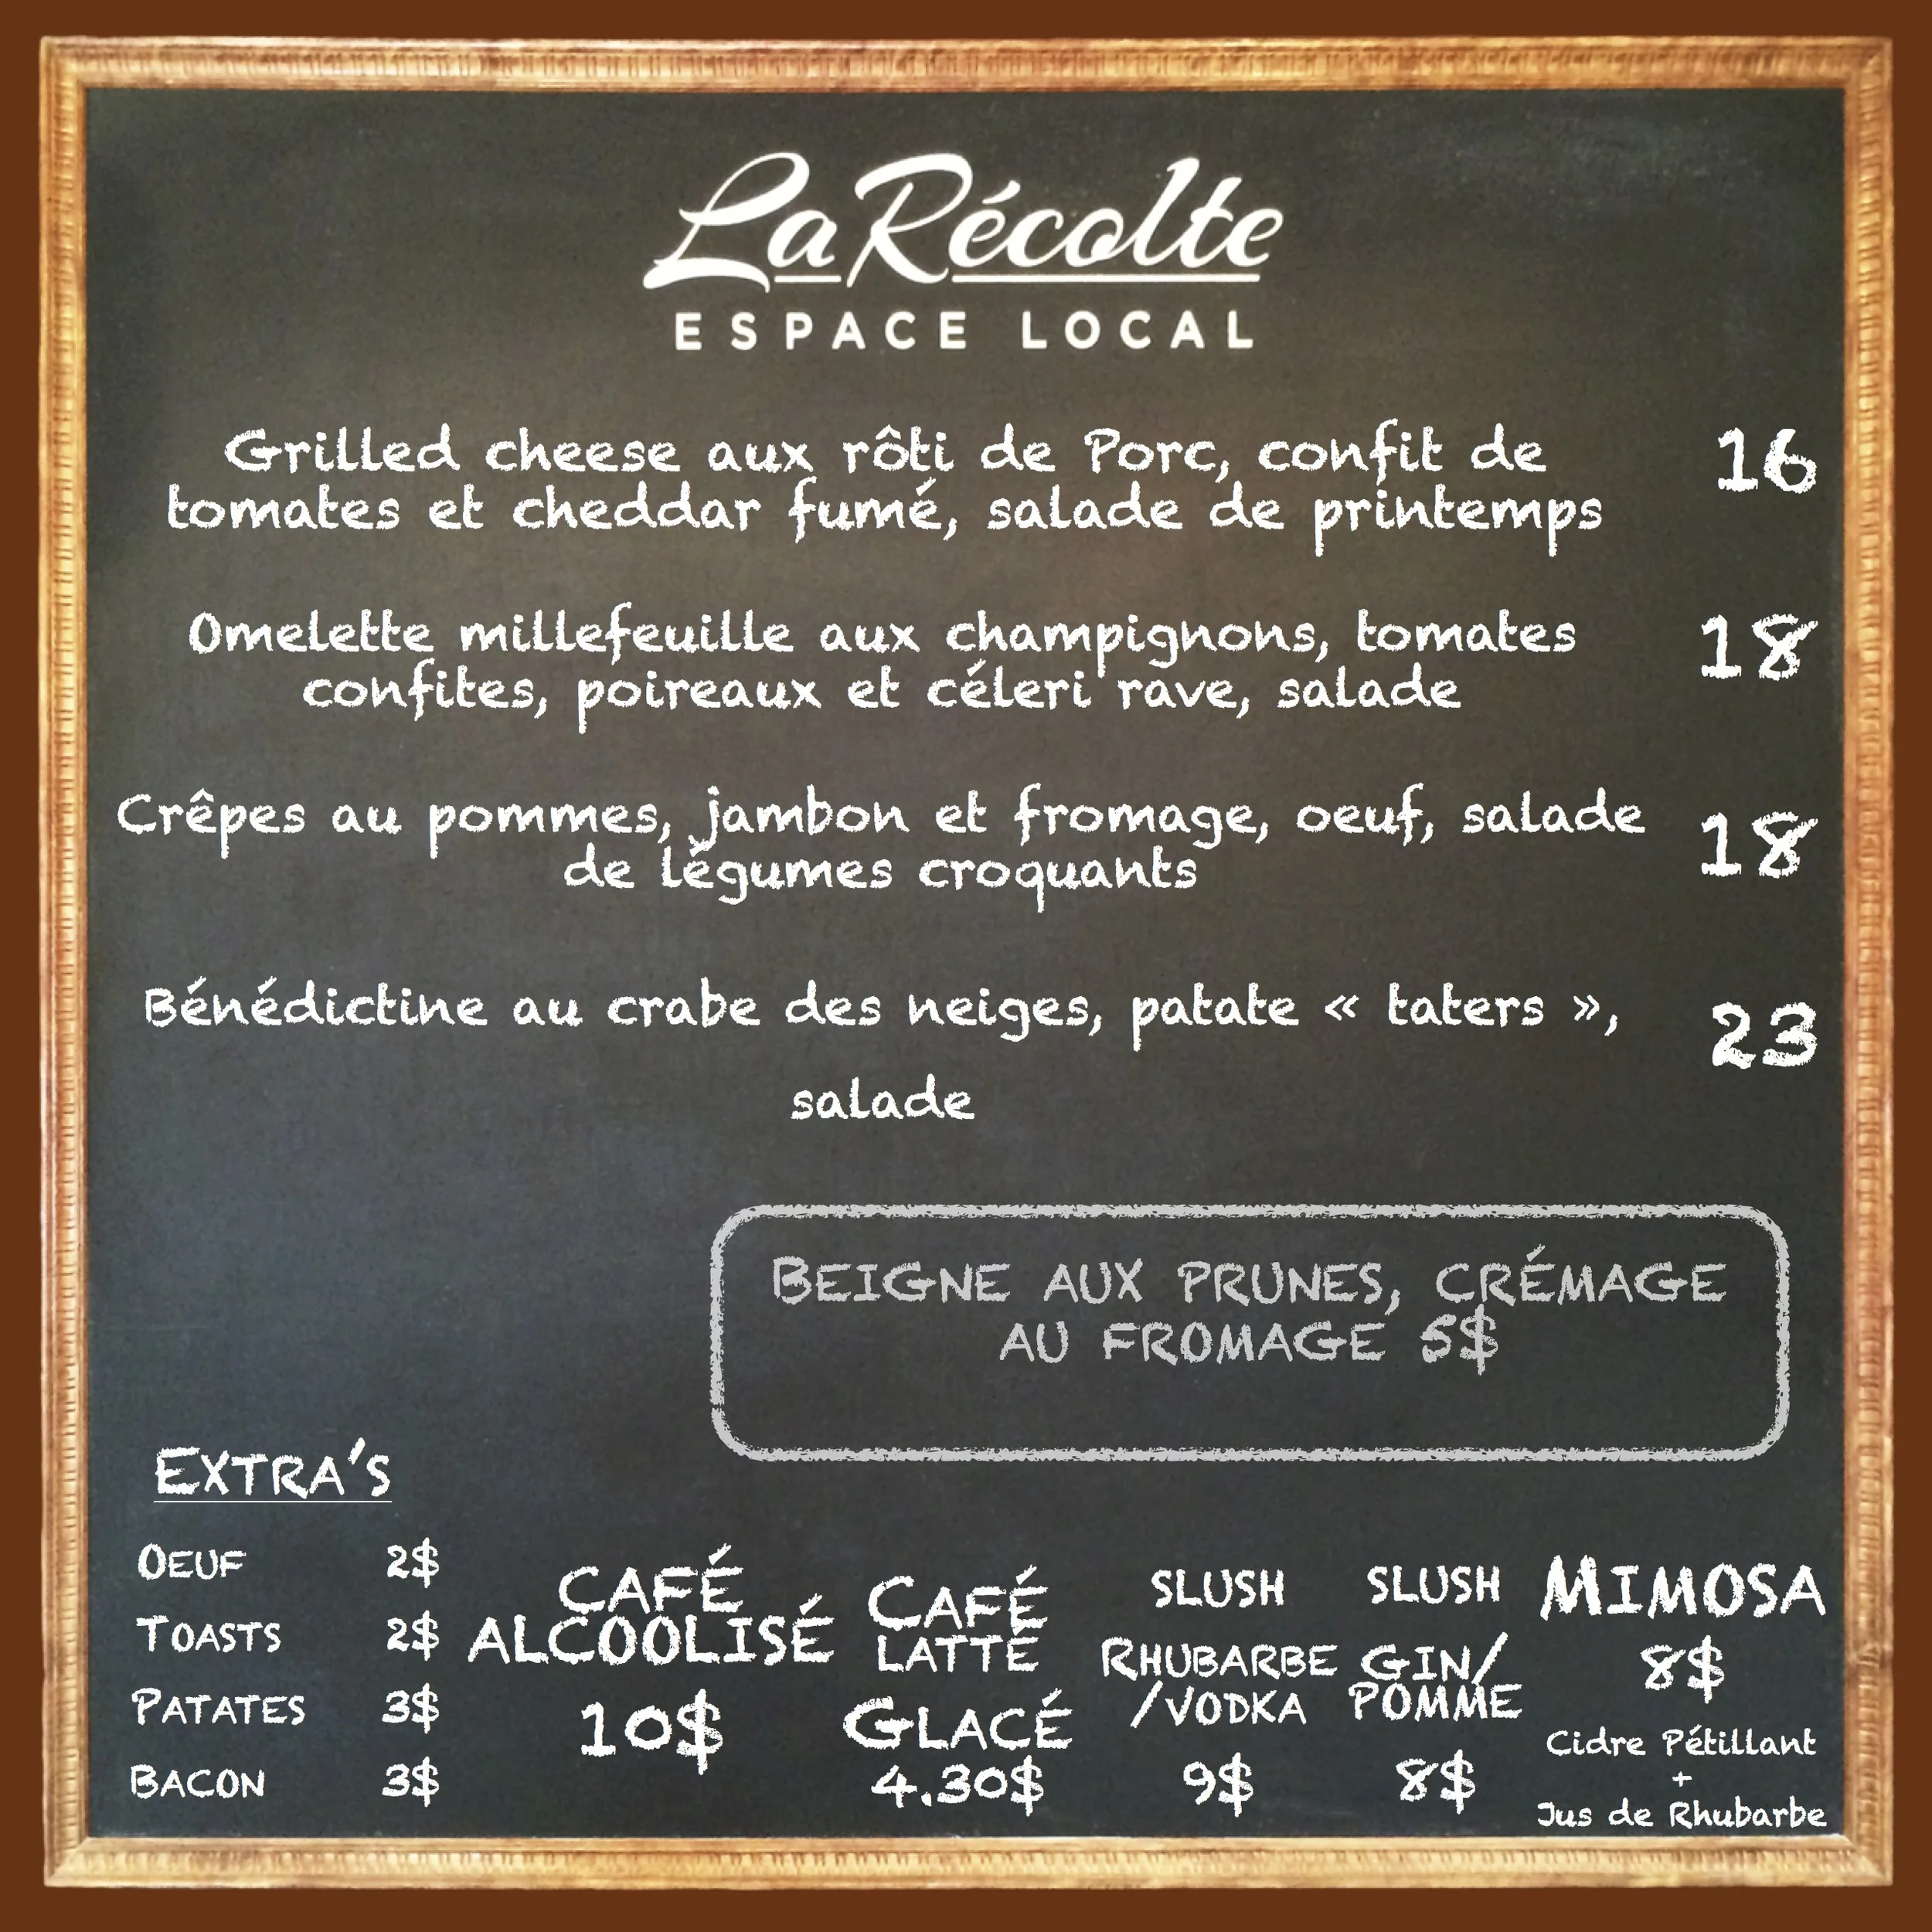 La Récolte
ESPACE LOCAL
Grilled cheese aux rôti de Porc, confit de
tomates et cheddar fumé, salade de printemps
16
Omelette millefeuille aux champignons, tomates
confites, poireaux et céleri rave, salade
18
Crêpes au pommes, jambon et fromage, oeuf, salade
de légumes croquants
18
Bénédictine au crabe des neiges, patate « taters »,
salade
23
BEIGNE AUX PRUNES, CRÉMAGE
AU FROMAGE 5$
EXTRA'S
OEUF 2$
TOASTS 2$
PATATES 3$
BACON 3$
CAFÉ
ALCOOLISÉ
10$
CAFÉ
LATTÉ
GLACÉ
4.30$
SLUSH
RHUBARBE
/VODKA
9$
SLUSH
GIN/
POMME
8$
MIMOSA
8$
Cidre Pétillant
+
Jus de Rhubarbe